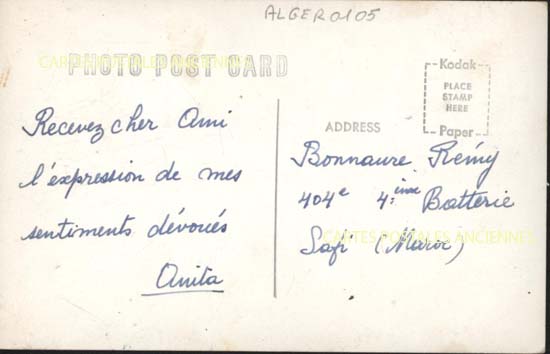 ALGER0105
CARTES POSTALES ANCIENNES
PHOTO POST CARD
Recevez cher Ami
l'expression de mes
sentiments dévoués
Anita
Kodak
PLACE
STAMP
HERE
Paper
ADDRESS
Bonnaure Rémy
404e 4:ème Batterie
Safi (Maroc)
CARTES POSTALES ANCIENNES